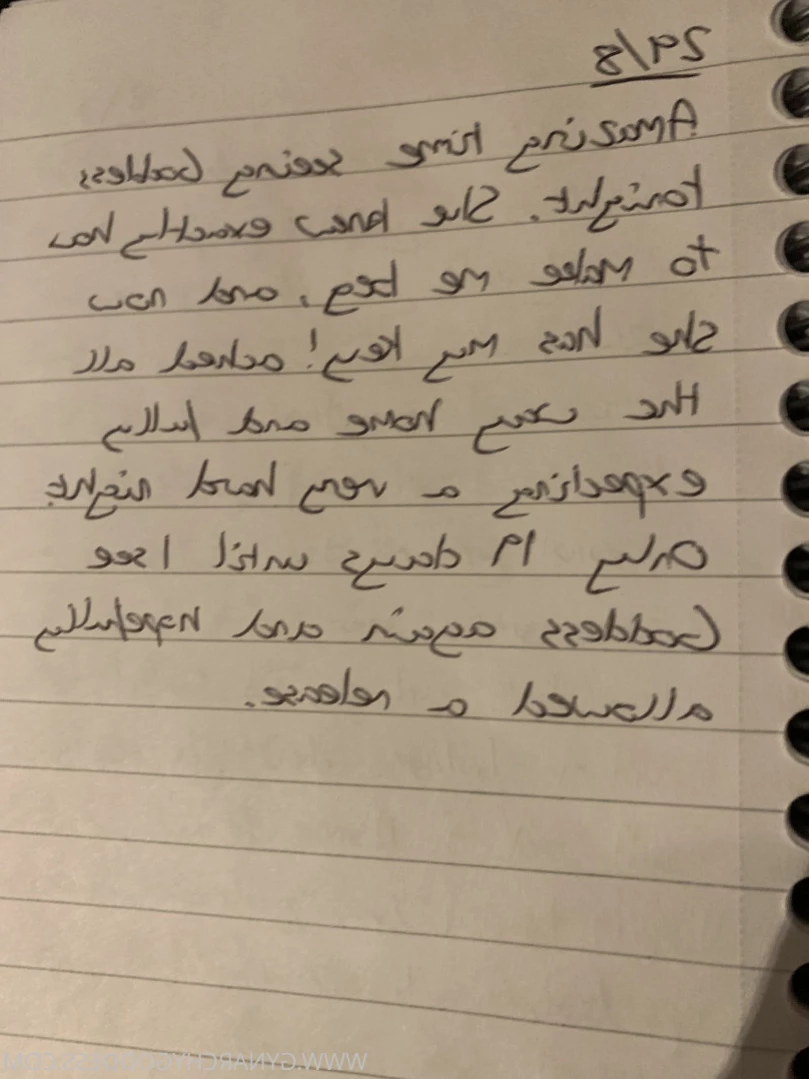 29/8
Amazing time seeing Goddess
tonight. She knew exactly how
to make me beg, and now
she has my key! ached all
the way home and fully
expecting a very hard night.
Only 19 days until I see
Goddess again and hopefully
allowed a release.
WWW.GYNARCHYGODDESS.COM